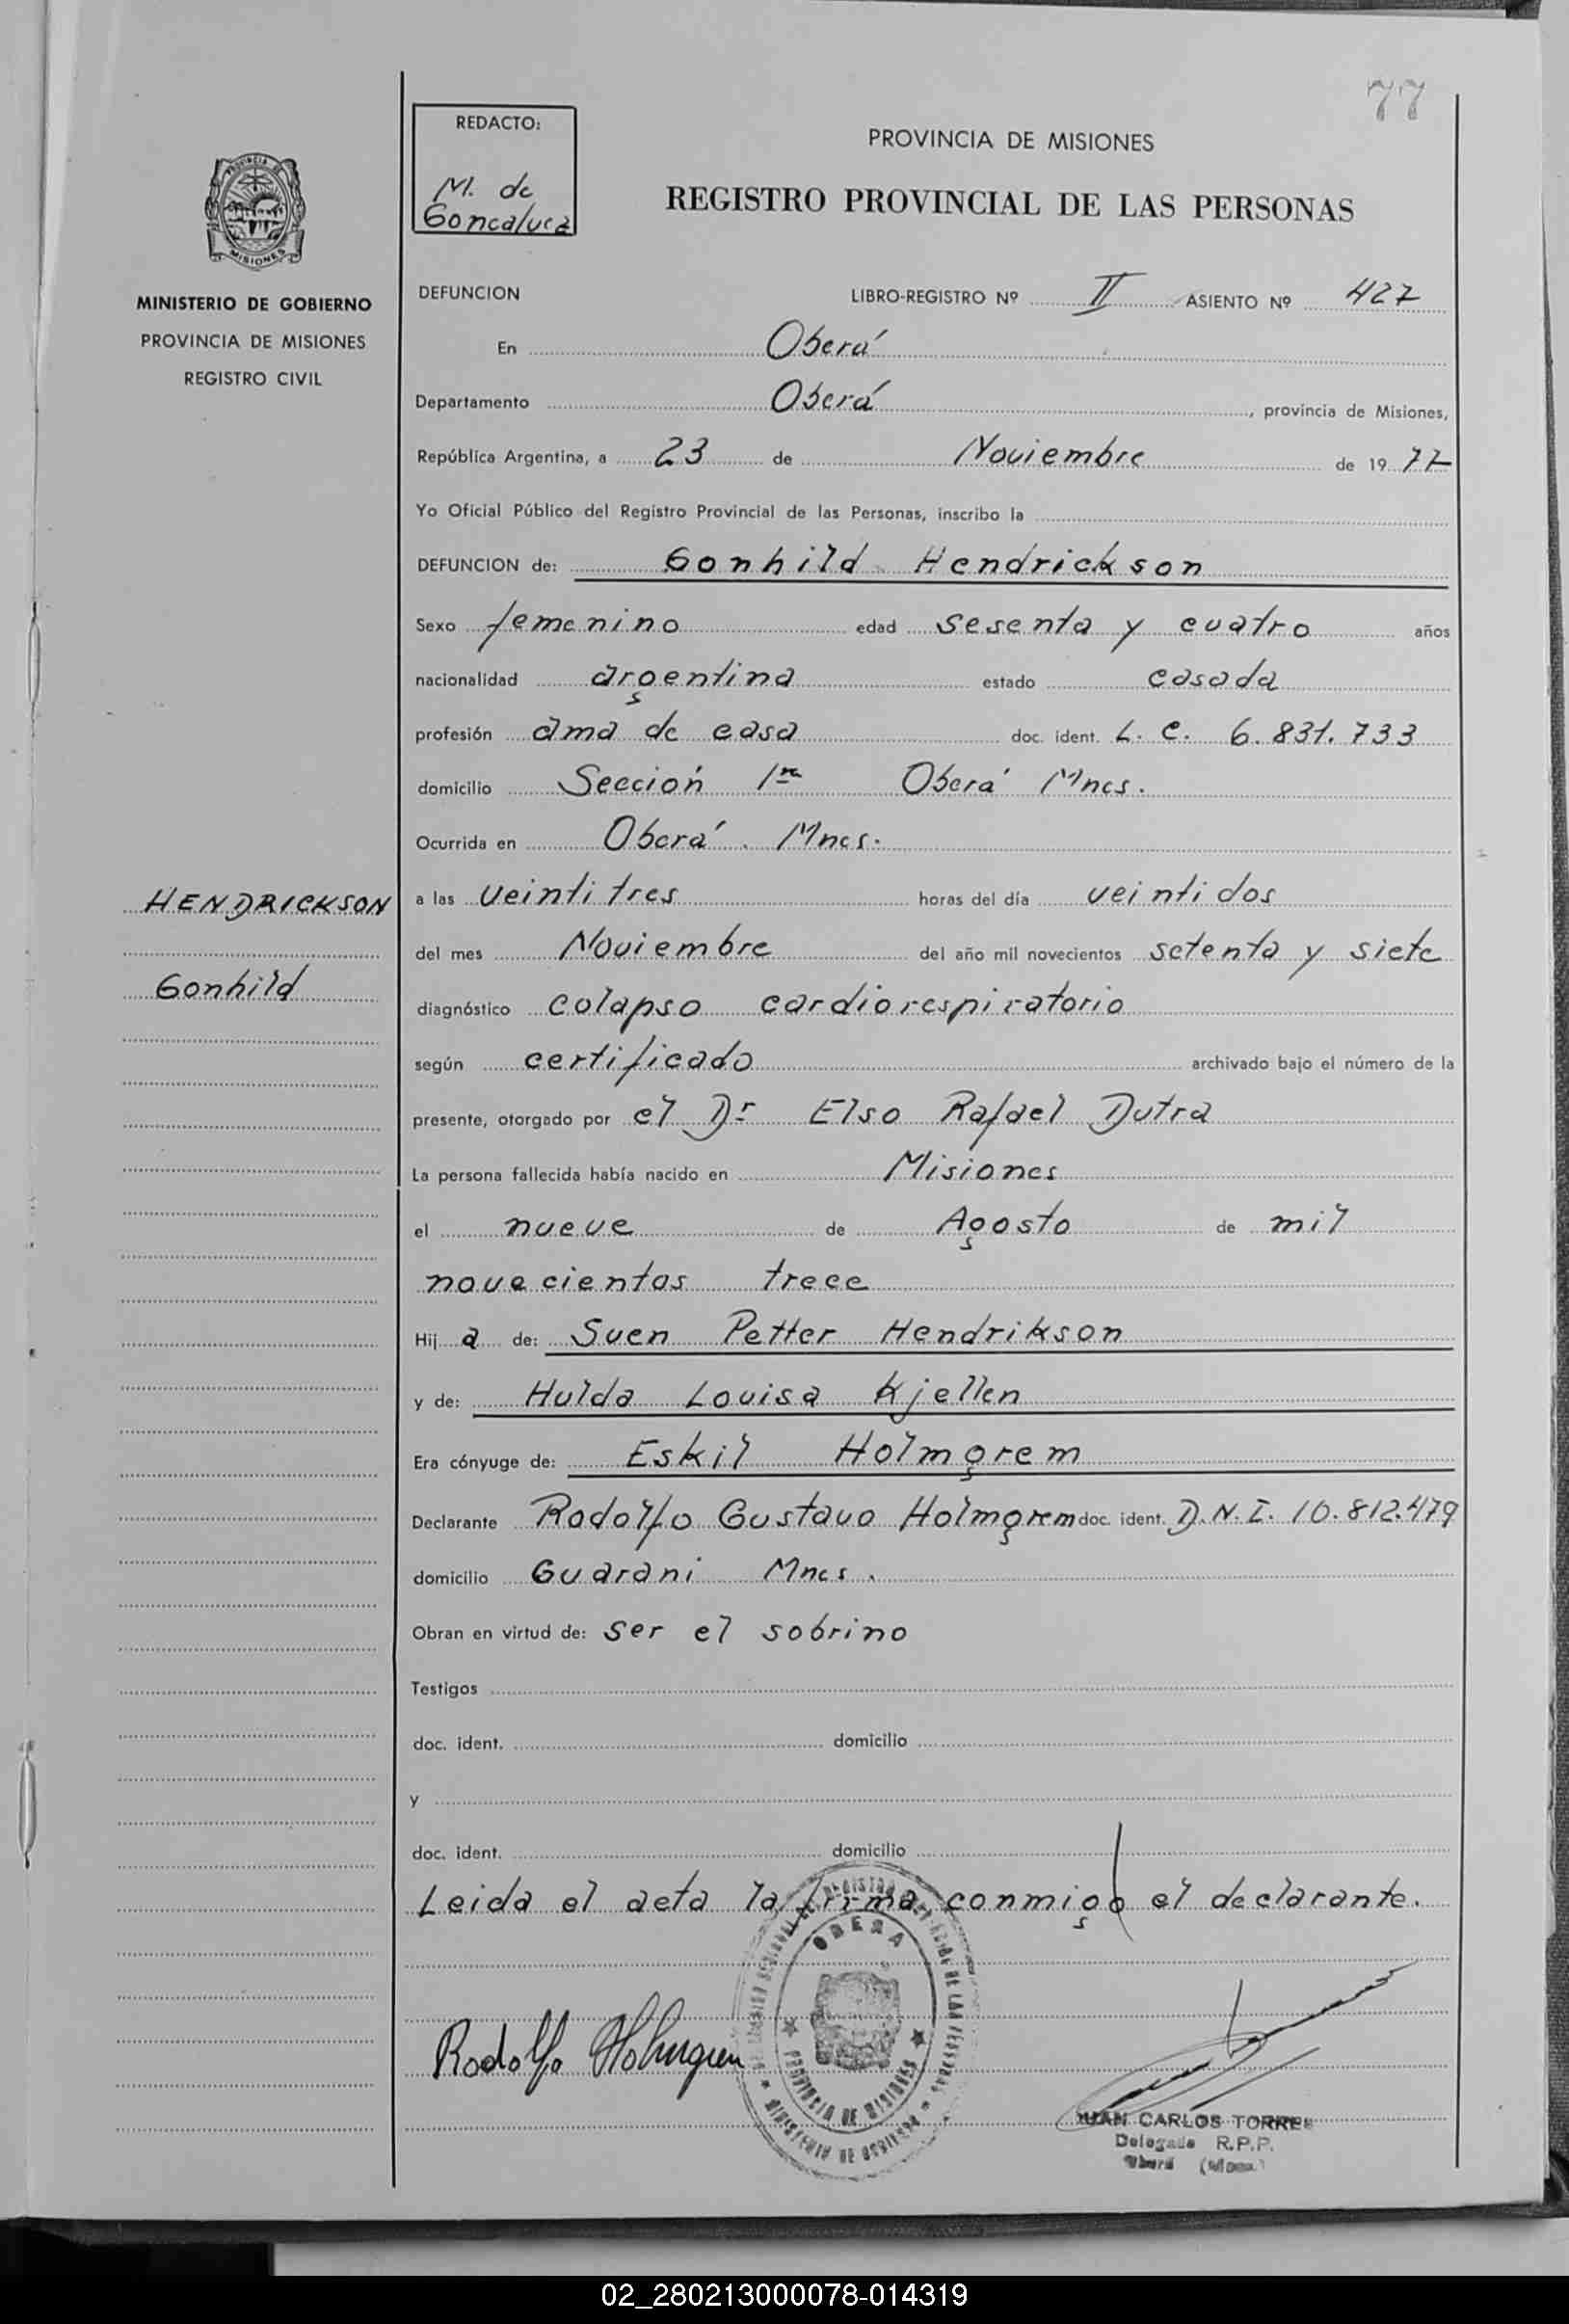 77
REDACTO:
M. de
Goncalvez
PROVINCIA DE MISIONES
REGISTRO PROVINCIAL DE LAS PERSONAS
PROVINCIA DE
MISIONES
MINISTERIO DE GOBIERNO
PROVINCIA DE MISIONES
REGISTRO CIVIL
DEFUNCION LIBRO-REGISTRO Nº II ASIENTO Nº 427
En Oberá
Departamento Oberá, provincia de Misiones,
República Argentina, a 23 de Noviembre de 1977
Yo Oficial Público del Registro Provincial de las Personas, inscribo la
DEFUNCION de: Gonhild Hendrickson
Sexo femenino edad sesenta y cuatro años
nacionalidad argentina estado casada
profesión ama de casa doc. ident. L. C. 6.831.733
domicilio Sección 1ra Oberá Mnes.
Ocurrida en Oberá. Mnes.
HENDRICKSON
Gonhild
a las veintitres horas del día veintidos
del mes Noviembre del año mil novecientos setenta y siete
diagnóstico colapso cardiorespiratorio
según certificado archivado bajo el número de la
presente, otorgado por el Dr Elso Rafael Dutra
La persona fallecida había nacido en Misiones
el nueve de Agosto de mil
novecientos trece
Hija de: Suen Petter Hendrikson
y de: Hulda Louisa Kjellen
Era cónyuge de: Eskil Holmgrem
Declarante Rodolfo Gustavo Holmgrem doc. ident. D.N.I. 10.812.479
domicilio Guarani Mnes.
Obran en virtud de: ser el sobrino
Testigos
doc. ident. domicilio
y
doc. ident. domicilio
Leida el acta la firma conmigo el declarante.
OBERA
PROVINCIA DE MISIONES
MINISTERIO DE GOBIERNO
Rodolfo Holmgren
JUAN CARLOS TORRES
Delegado R.P.P.
Oberá (Mnes.)
02_280213000078-014319